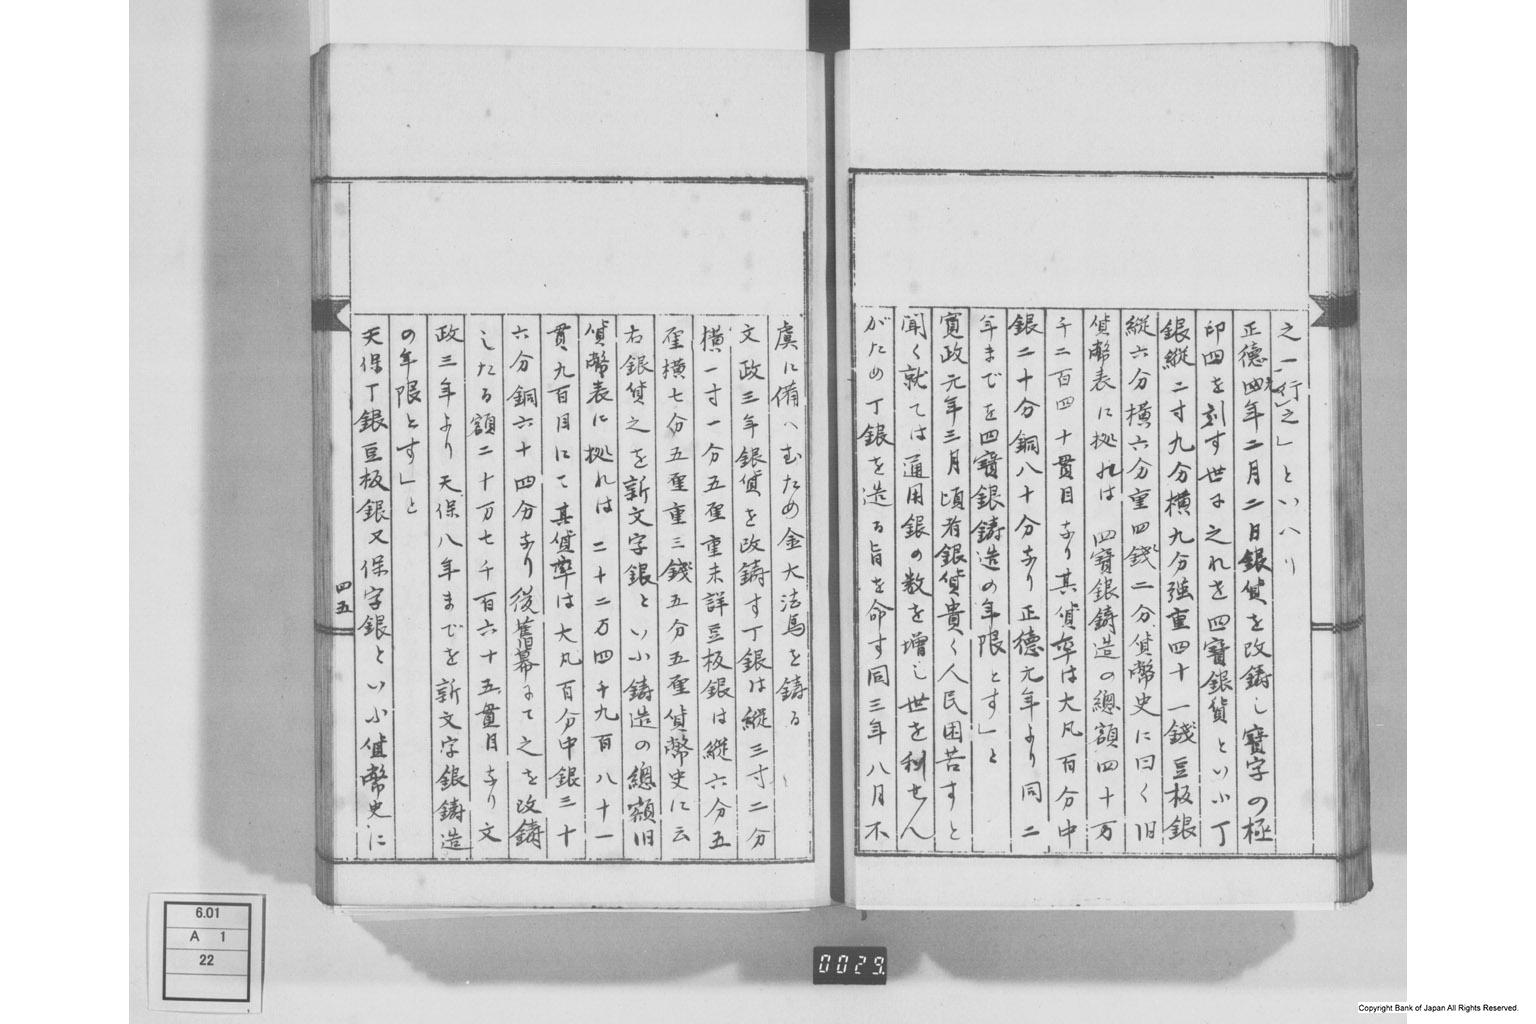 之一行之」といへり
正德四年二月二日銀貨を改鋳し寶字の極
印四を刻す世に之れを四寶銀貨といふ丁
銀縦二寸九分横九分强重四十一錢豆板銀
縦六分横六分重四錢二分貨幣史に曰く旧
貨幣表に拠れは四寶銀鋳造の總額四十万
千二百四十貫目なり其貨率は大凡百分中
銀二十分銅八十分なり正德元年より同二
年までを四寶銀鋳造の年限とす」と
寛政元年三月頃者銀貨貴く人民困苦すと
聞く就ては通用銀の数を増し世を利せん
がため丁銀を造る旨を命す同三年八月不
虞に備へむため金大法馬を鋳る
文政三年銀貨を改鋳す丁銀は縦三寸二分
横一寸一分五厘重未詳豆板銀は縦六分五
厘横七分五厘重三錢五分五厘貨幣史に云
右銀貨之を新文字銀といふ鋳造の總額旧
貨幣表に拠れは二十二万四千九百八十一
貫九百目にて其貨率は大凡百分中銀三十
六分銅六十四分なり後舊幕にて之を改鋳
したる額二十万七千百六十五貫目なり文
政三年より天保八年までを新文字銀鋳造
の年限とす」と
天保丁銀豆板銀又保字銀といふ貨幣史に
四五
6.01
A 1
22
0029
Copyright Bank of Japan All Rights Reserved.